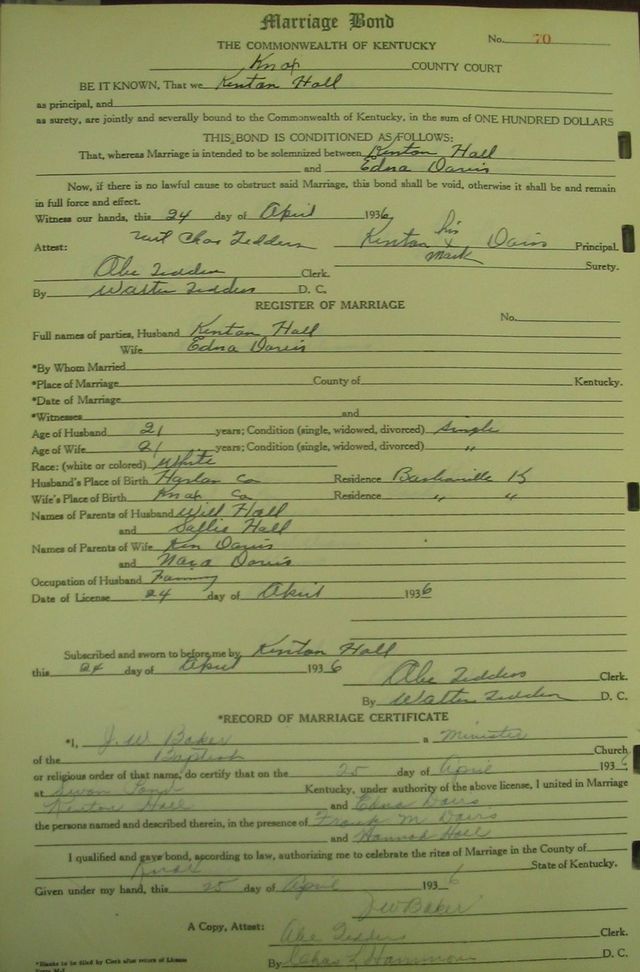 Marriage Bond
No. 70
THE COMMONWEALTH OF KENTUCKY
Knox COUNTY COURT
BE IT KNOWN, That we Kenton Hall
as principal, and
as surety, are jointly and severally bound to the Commonwealth of Kentucky, in the sum of ONE HUNDRED DOLLARS
THIS BOND IS CONDITIONED AS FOLLOWS:
That, whereas Marriage is intended to be solemnized between Kenton Hall
and Edna Davis
Now, if there is no lawful cause to obstruct said Marriage, this bond shall be void, otherwise it shall be and remain
in full force and effect.
Witness our hands, this 24 day of April 1936
Attest: Chas Tedders Kenton his x mark Davis Principal.
Surety.
Abe Tedders Clerk.
By Walter Tedders D. C.
REGISTER OF MARRIAGE
No.
Full names of parties, Husband Kenton Hall
Wife Edna Davis
*By Whom Married
*Place of Marriage County of Kentucky.
*Date of Marriage
*Witnesses and
Age of Husband 21 years; Condition (single, widowed, divorced) Single
Age of Wife 21 years; Condition (single, widowed, divorced) "
Race: (white or colored) White
Husband's Place of Birth Harlan Co Residence Barbourville K
Wife's Place of Birth Knox Co Residence " "
Names of Parents of Husband Will Hall
and Sallie Hall
Names of Parents of Wife Ken Davis
and Davis
Occupation of Husband
Date of License 24 day of April 1936
Subscribed and sworn to before me by Kenton Hall
this 24 day of April 1936
Abe Tedders Clerk.
By Walter Tedders D. C.
*RECORD OF MARRIAGE CERTIFICATE
*I, J. W. Baker a Minister
of the Baptist Church
or religious order of that name, do certify that on the 25 day of April 1936
at Swan Pond Kentucky, under authority of the above license, I united in Marriage
Kenton Hall and Edna Davis
the persons named and described therein, in the presence of Frank M Davis
and Hannah Hall
I qualified and gave bond, according to law, authorizing me to celebrate the rites of Marriage in the County of
Knox State of Kentucky.
Given under my hand, this 25 day of April 1936
J W Baker
A Copy, Attest: Abe Tedders Clerk.
By Chas L Hammons D. C.
*Blanks to be filled by Clerk after return of License